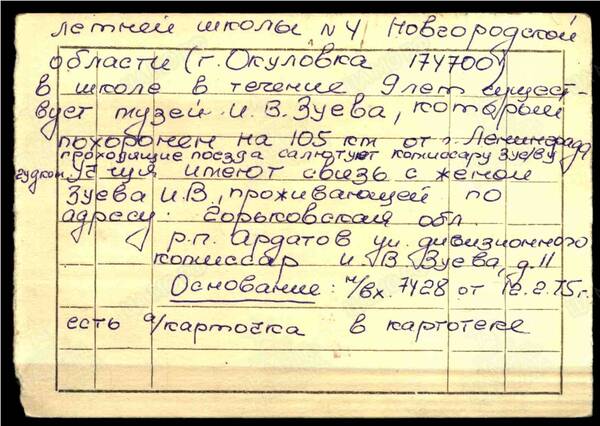 летней школы №4 Новгородской
области (г. Окуловка 174700)
в школе в течение 9 лет сущест-
вует музей И.В. Зуева, который
похоронен на 105 км от г. Ленинграда
проходящие поезда салютуют комиссару Зуеву
гудком. Уч-ся имеют связь с женой
Зуева И.В., проживающей по
адресу: Горьковская обл
р.п. Ардатов ул. дивизионного
комиссар И.В. Зуева, д. 11
Основание: н/вх. 7428 от 12.2.75 г.
есть а/карточка в картотеке